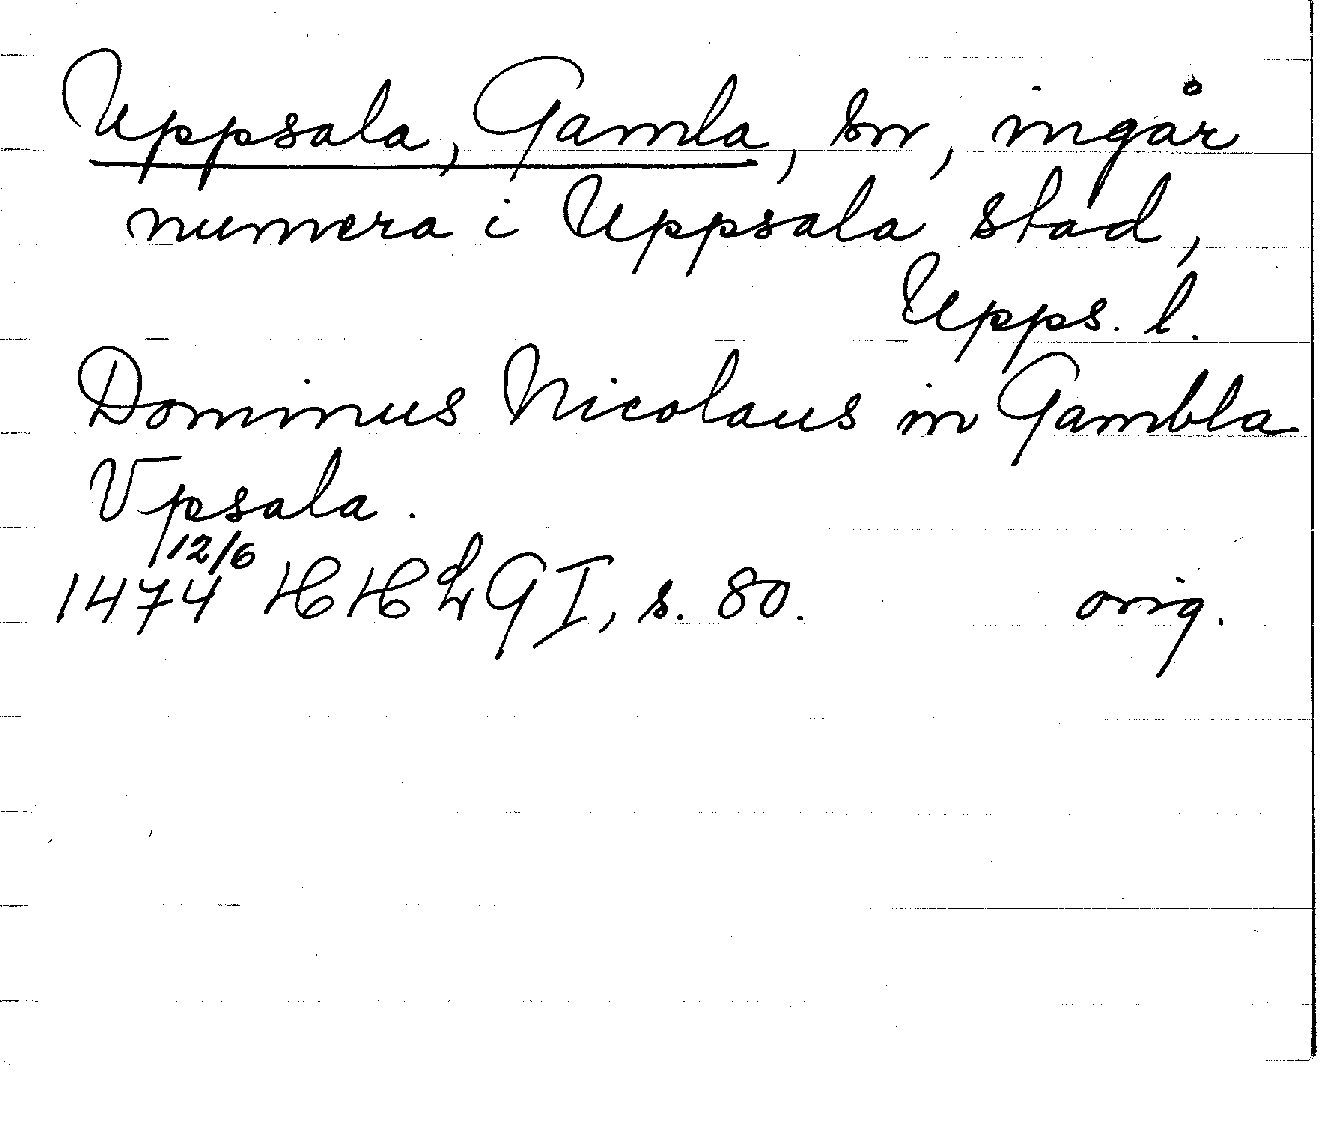 Uppsala, Gamla, sn, ingår
numera i Uppsala stad,
Upps. l.
Dominus Nicolaus in Gambla
Vpsala.
1474 12/6 HHLG I, s. 80. orig.